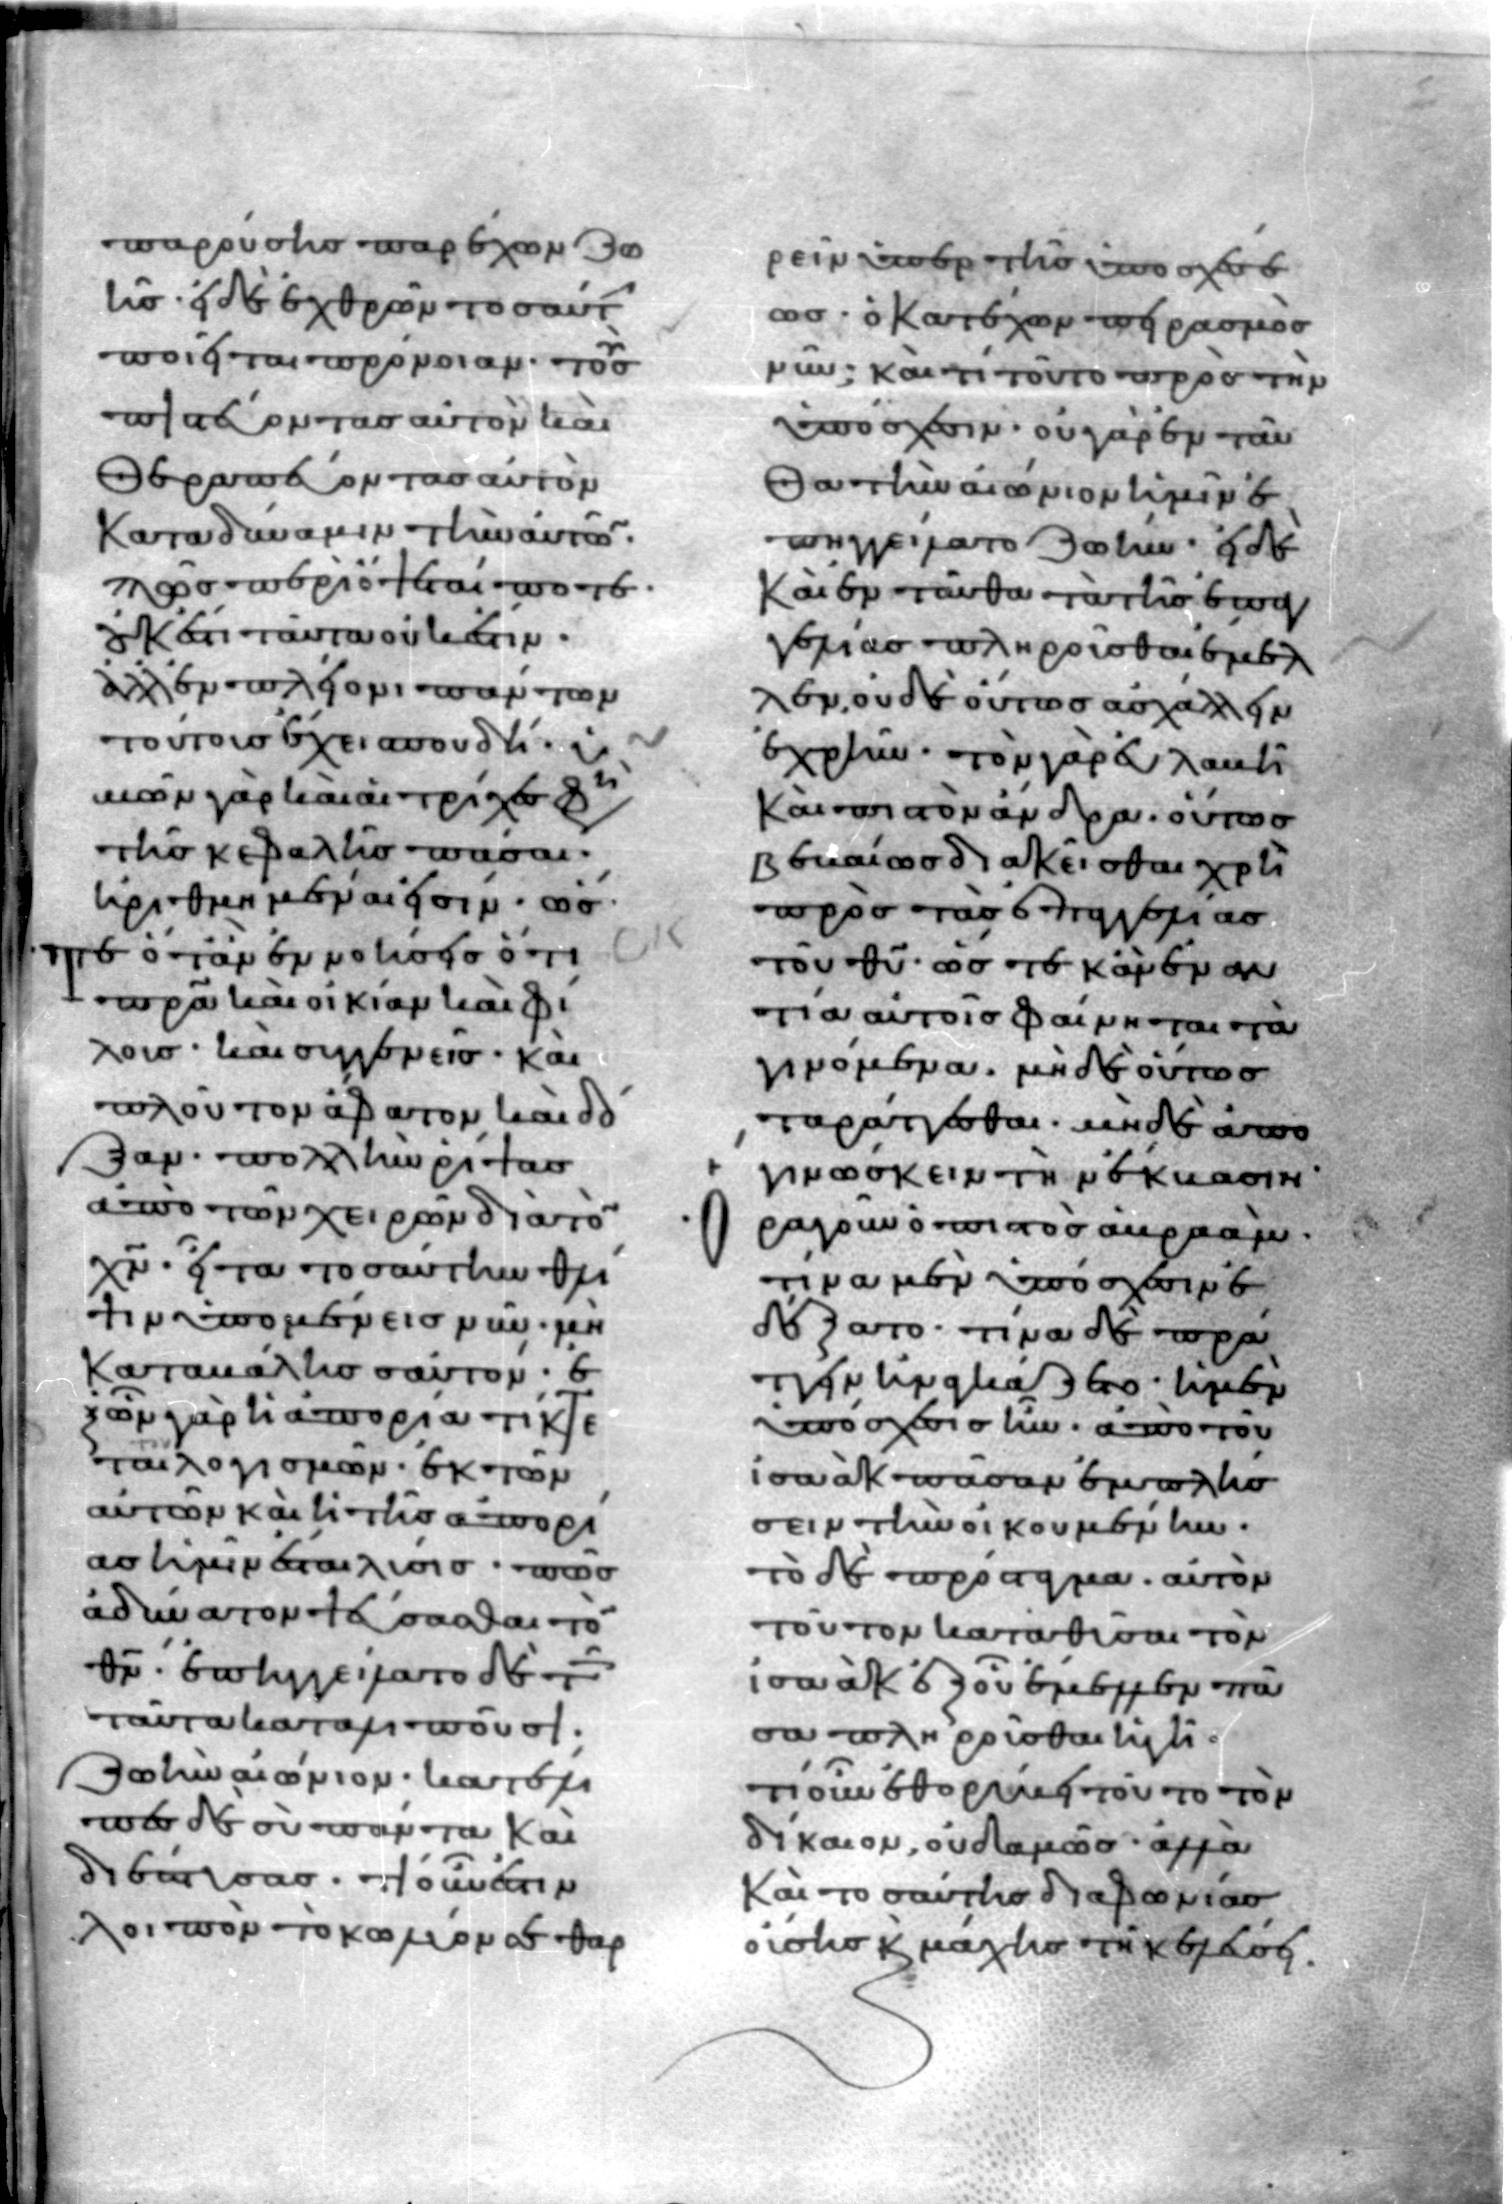 παρούσης παρέχων ζω
ῆς· εἰ δὲ ἐχθρῶν τοσαύτ
ποιεῖται πρόνοιαν· τοὺς
πιστεύοντας αὐτὸν καὶ
Θεραπεύοντας αὐτὸν
κατα δύναμιν τὴν αὐτῶν·
πῶς περιόψεται ποτε·
οὐκ ἔστι ταῦτα οὐκ ἔστιν·
ἀλλ ἐν πλείονι πάντων
τούτοις ἔχει σπουδῆ· ὑ
μῶν γὰρ καὶ αἱ τρίχες φη
τῆς κεφαλῆς πᾶσαι·
ἠριθμημέναι εἰσίν· ὥσ
τε ὅτ ἂν ἐννοήσεις ὅτι
πρα καὶ οἰκίαν καὶ φί
λοις· καὶ συγγενεῖς· καὶ
πλοῦτον ἄφατον καὶ δό
ξαν· πολλὴν ῥίψας
ἀπὸ τῶν χειρῶν διὰ τὸν
χν· εἶτα τοσαύτην θλί
ψιν ὑπομένεις νῦν· μὴ
καταβάλης σαυτόν· ἐ
ξ ὧν γὰρ ἡ ἀπορία τίκτε
ται λογισμῶν· ἐκ τῶν
αὐτῶν καὶ ἡ τῆς ἀπορί
ας ἡμῖν ἔσται λύσις· πῶς
ἀδύνατον ψεύσασθαι τὸν
θν· ἐπηγγείλατο δὲ τ
ταῦτα καταλιποῦσι·
ζωὴν αἰώνιον· κατέλι
πες δὲ σὺ πάντα καὶ
διέπτυσας· τί οὖν ἔστιν
λοιπὸν τὸ κωλύον σε θαρ
ρεῖν ὑπερ τῆς ὑποσχέσε
ως· ὁ κατέχων πειρασμὸς
νῦν; καὶ τί τοῦτο πρὸς τὴν
ὑπόσχεσιν· οὐ γὰρ ἐν ταῦ
θα τὴν αἰώνιον ἡμῖν ἐ
πηγγείλατο ζωήν· εἰ δὲ
καὶ ἐν ταῦθα τὰ τῆς ἐπαγ
γελίας πληροῦσθαι ἔμελ
λεν, οὐδὲ οὕτως ἀσχάλλειν
ἐχρῆν· τὸν γὰρ εὐλαβῆ
καὶ πιστὸν ἄνδρα· οὕτως
βεβαίως διακεῖσθαι χρὴ
πρὸς τὰς ἐπαγγελίας
τοῦ θυ· ὥς τε κἂν ἐναν
τία αὐτοῖς φαίνηται τὰ
γινόμενα· μὴ δὲ οὕτως
ταράττεσθαι· μὴ δὲ ἀπο
γινώσκειν τὴν ἔκβασιν·
Ορα γοῦν ὁ πιστὸς ἀβραὰμ·
τίνα μὲν ὑπόσχεσιν ἐ
δέξατο· τίνα δὲ πρά
ττειν ἠναγκάζετο· ἡ μὲν
ὑπόσχεσις ἦν· ἀπὸ τοῦ
ἰσαὰκ πᾶσαν ἐμπλήσ
σειν τὴν οἰκουμένην·
τὸ δὲ πρόσταγμα· αὐτὸν
τοῦτον καταθῦσαι τὸν
ἰσαὰκ ἐξ οὗ ἔμελλεν πᾶ
σα πληροῦσθαι ἡ γῆ·
τί οὖν ἐθορύβει τοῦτο τὸν
δίκαιον, οὐδαμῶς· ἀλλὰ
καὶ τοσαύτης διαφωνίας
οὔσης κ μάχης τῆ κελεύσει·